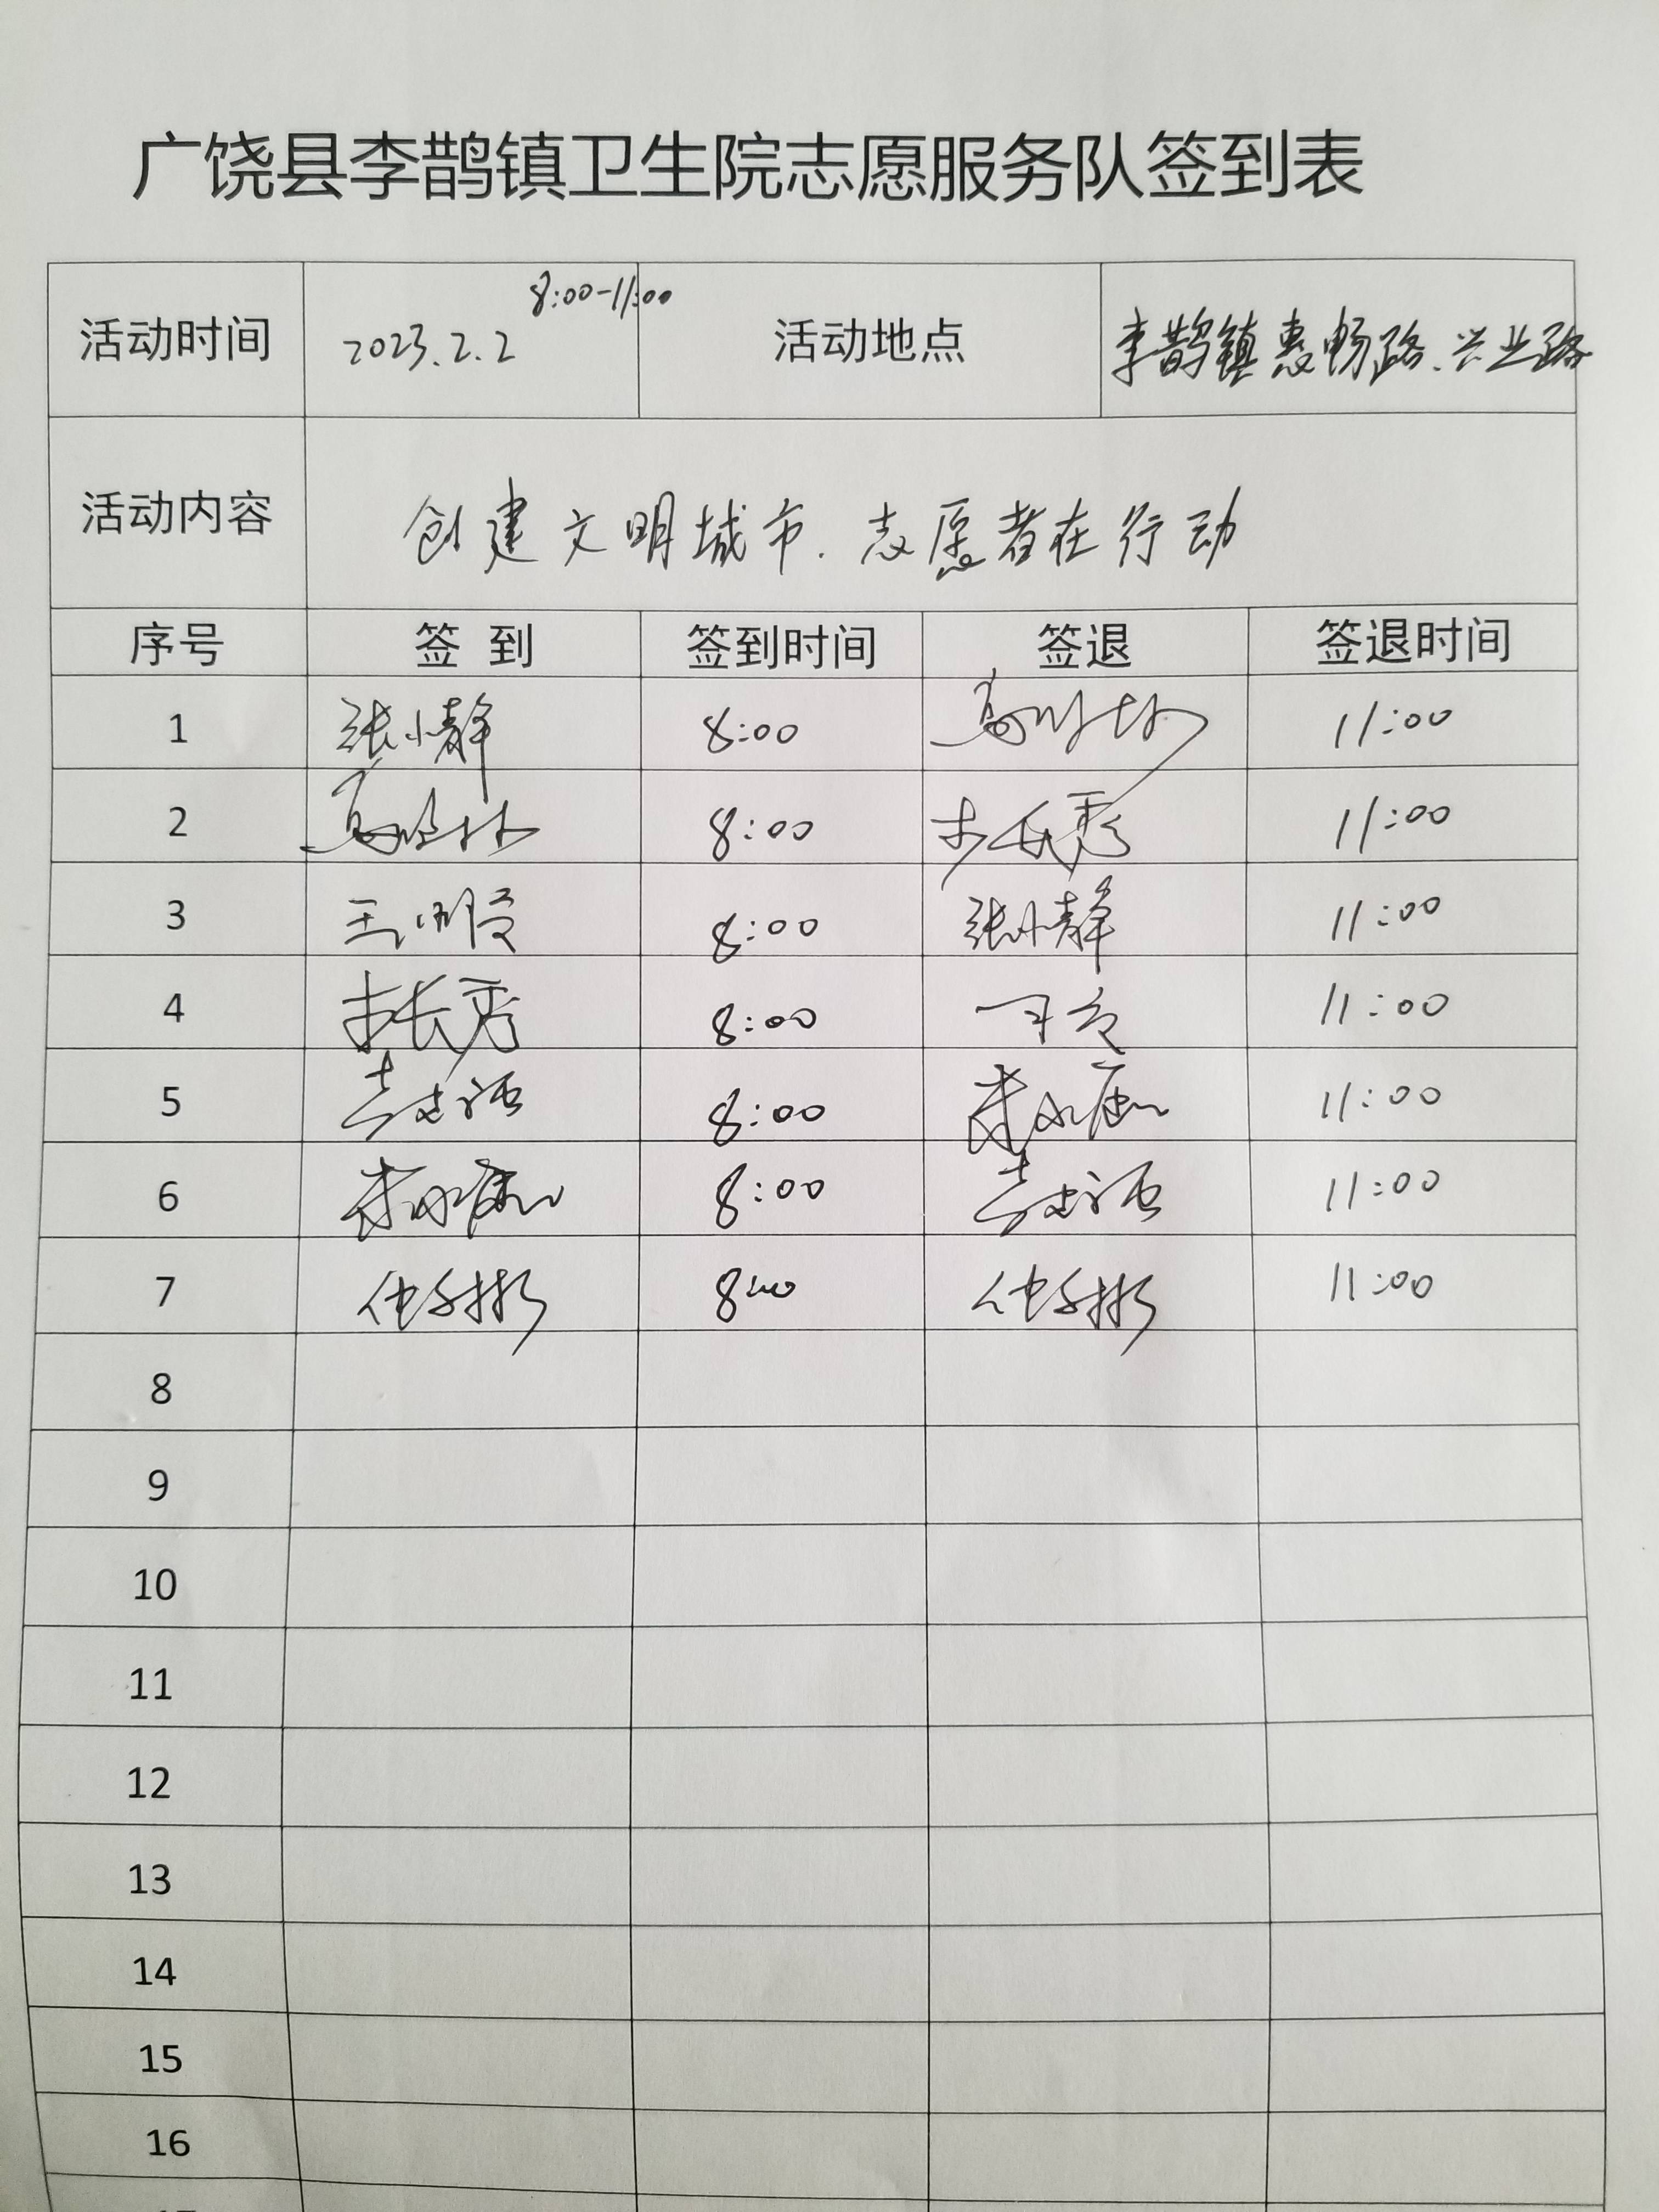 广饶县李鹊镇卫生院志愿服务队签到表
8:00-11:00
活动时间 2023.2.2 活动地点 李鹊镇惠畅路、兴业路
活动内容 创建文明城市.志愿者在行动
序号 签到 签到时间 签退 签退时间
1 张小静 8:00 11:00
2 8:00 11:00
3 王 8:00 张小静 11:00
4 长秀 8:00 11:00
5 8:00 11:00
6 8:00 11:00
7 8:00 11:00
8
9
10
11
12
13
14
15
16